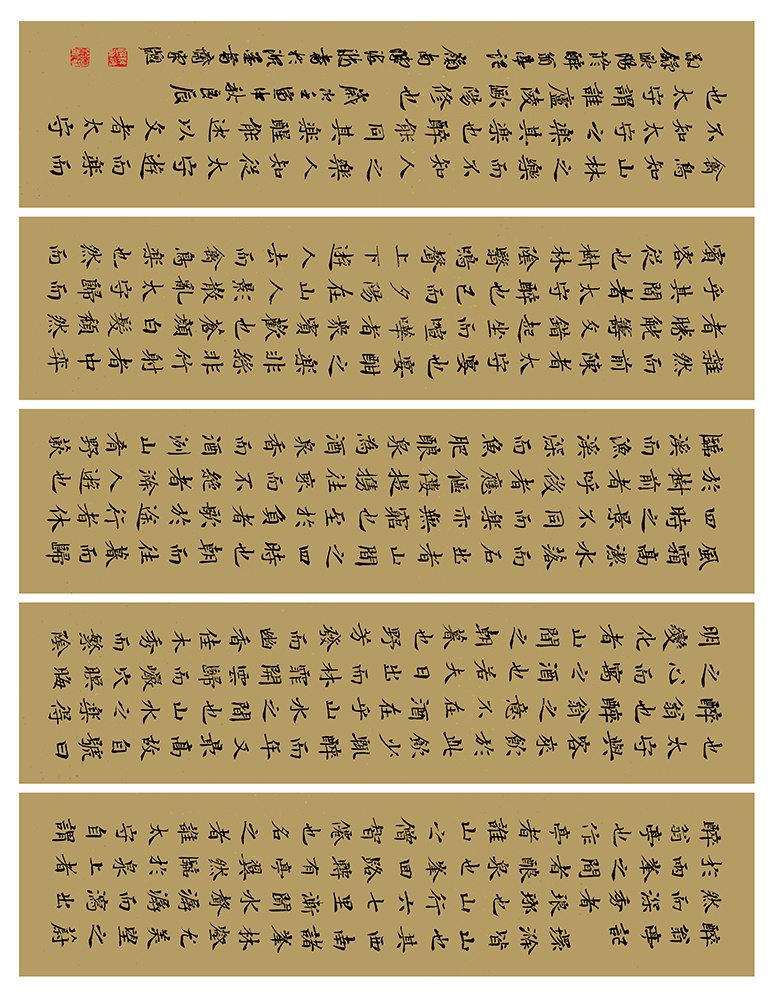 醉翁亭記
環滁皆山也其西南諸峯林壑尤美望之蔚
然而深秀者琅琊也山行六七里漸聞水聲潺潺而瀉出
於兩峯之間者釀泉也峯回路轉有亭翼然臨於泉上者
醉翁亭也作亭者誰山之僧智僊也名之者誰太守自謂
也太守與客來飲於此飲少輒醉而年又最高故自號曰
醉翁也醉翁之意不在酒在乎山水之間也山水之樂得
之心而寓之酒也若夫日出而林霏開雲歸而巖穴暝晦
明變化者山間之朝暮也野芳發而幽香佳木秀而繁陰
風霜高潔水落而石出者山間之四時也朝而往暮而歸
四時之景不同而樂亦無窮也至於負者歌於途行者休
於樹前者呼後者應傴僂提攜往來而不絕者滁人遊也
臨溪而漁溪深而魚肥釀泉為酒泉香而酒洌山肴野蔌
雜然而前陳者太守宴也宴酣之樂非絲非竹射者中弈
者勝觥籌交錯起坐而喧嘩者眾賓歡也蒼顏白髮頹然
乎其間者太守醉也已而夕陽在山人影散亂太守歸而
賓客從也樹林陰翳鳴聲上下遊人去而禽鳥樂也然而
禽鳥知山林之樂而不知人之樂人知從太守遊而樂而
不知太守之樂其樂也醉能同其樂醒能述以文者太守
也太守謂誰廬陵歐陽修也 歲次壬寅中秋良辰
錄歐陽修醉翁亭記 嶺南